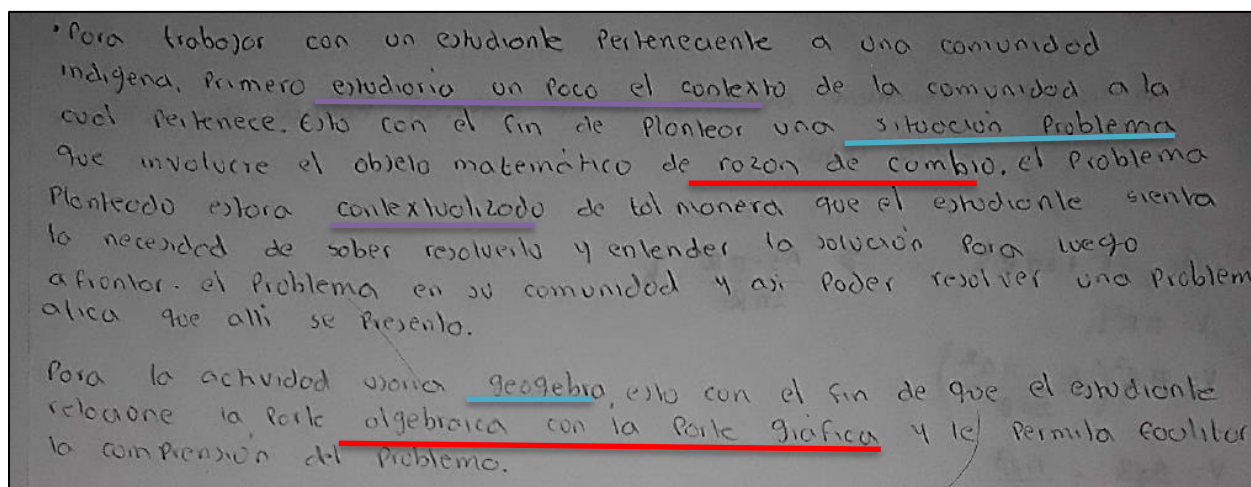 • Para trabajar con un estudiante Perteneciente a una comunidad
indigena, Primero estudiaria un Poco el contexto de la comunidad a la
cual Pertenece. Esto con el fin de Plantear una situación Problema
que involucre el objeto matemático de razon de cambio. el Problema
Planteado estara contextualizado de tal manera que el estudiante sienta
la necesidad de saber resolverlo y entender la solución Para luego
afrontar. el Problema en su comunidad y asi Poder resolver una Problem
atica que alli se Presenta.
Para la actividad usaria geogebra, esto con el fin de que el estudiante
relacione la Parte algebraica con la Parte gráfica y le Permita facilitar
la comprensión del Problema.